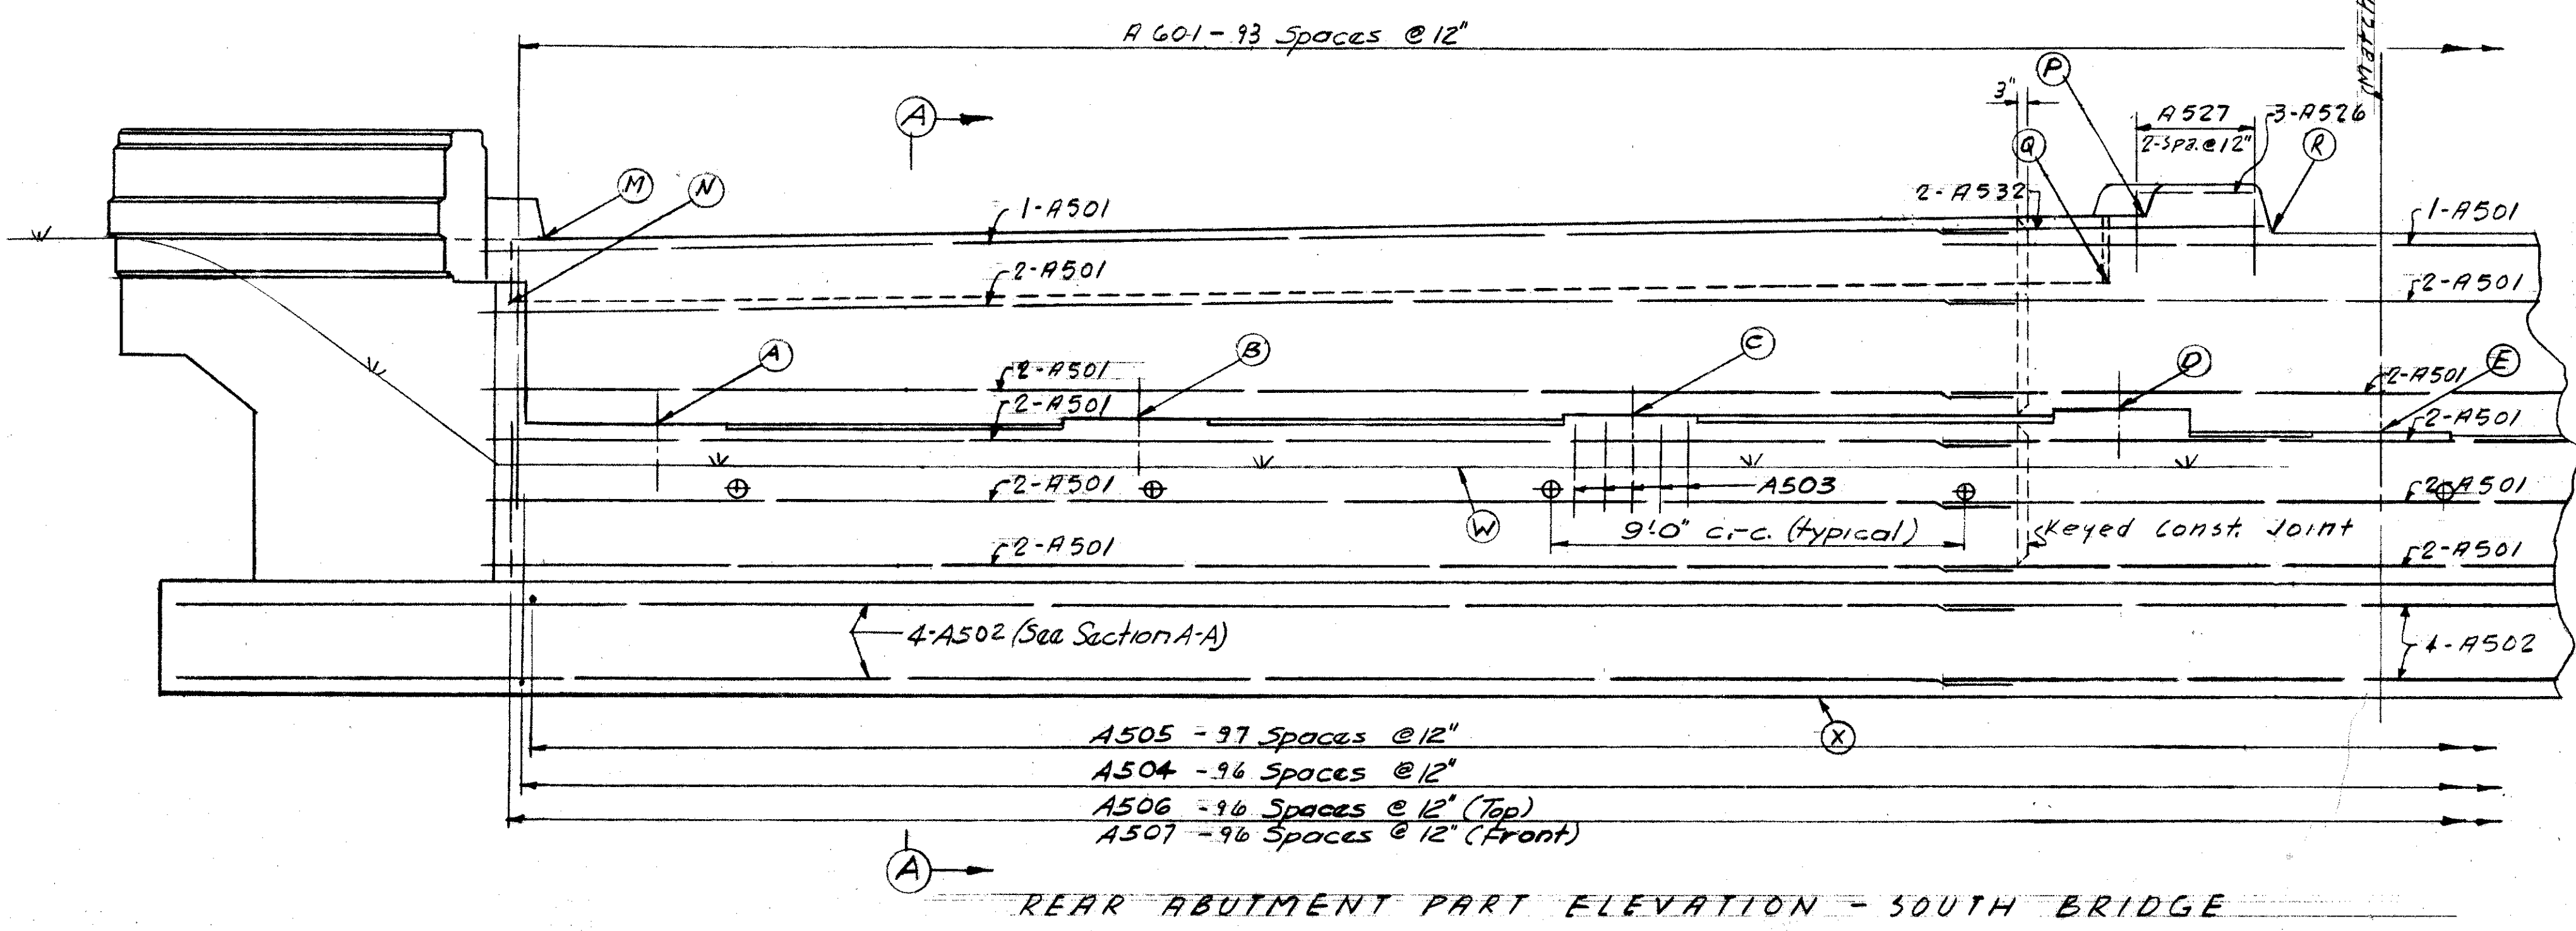 A601-93 Spaces @ 12"
Match
A
P
3"
A527
3-A526
2-Spa.@12"
Q
R
M
N
1-A501
2-A532
1-A501
2-A501
2-A501
A
B
C
D
E
2-A501
2-A501
2-A501
2-A501
2-A501
A503
2-A501
W
9'0" c.-c. (typical)
Keyed Const. Joint
2-A501
2-A501
4-A502 (See Section A-A)
4-A502
X
A505 -97 Spaces @12"
A504 -96 Spaces @12"
A506 -96 Spaces @ 12" (Top)
A507 -96 Spaces @ 12" (Front)
A
REAR ABUTMENT PART ELEVATION - SOUTH BRIDGE